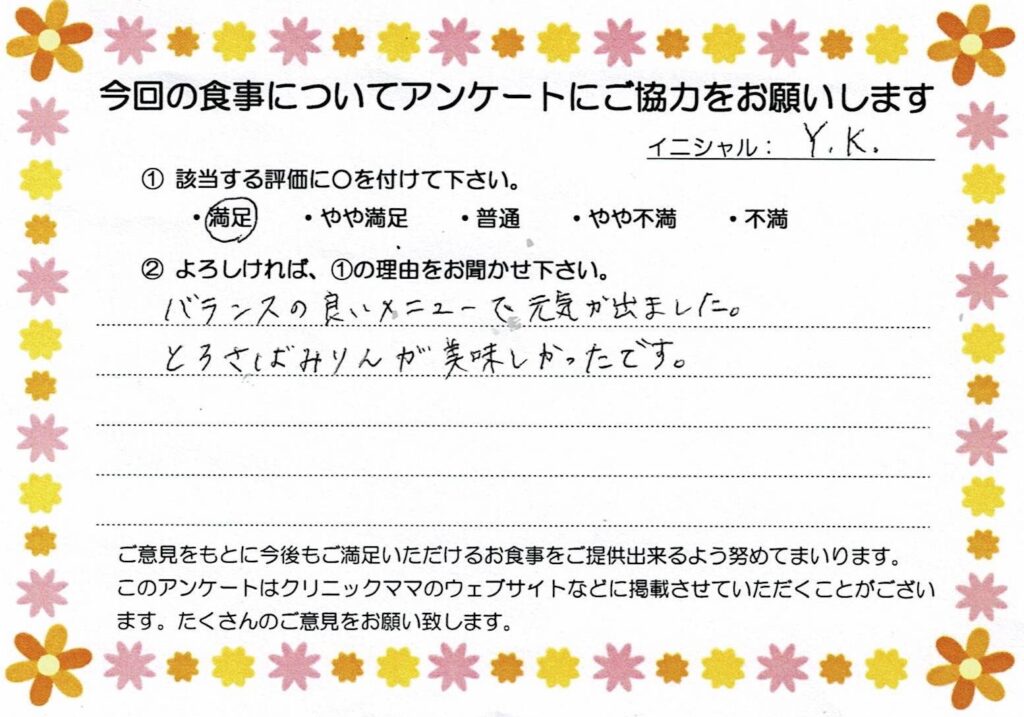 今回の食事についてアンケートにご協力をお願いします
イニシャル： Y.K.
① 該当する評価に〇を付けて下さい。
・満足 ・やや満足 ・普通 ・やや不満 ・不満
② よろしければ、①の理由をお聞かせ下さい。
バランスの良いメニューで元気が出ました。
とろさばみりんが美味しかったです。
ご意見をもとに今後もご満足いただけるお食事をご提供出来るよう努めてまいります。
このアンケートはクリニックママのウェブサイトなどに掲載させていただくことがござい
ます。たくさんのご意見をお願い致します。